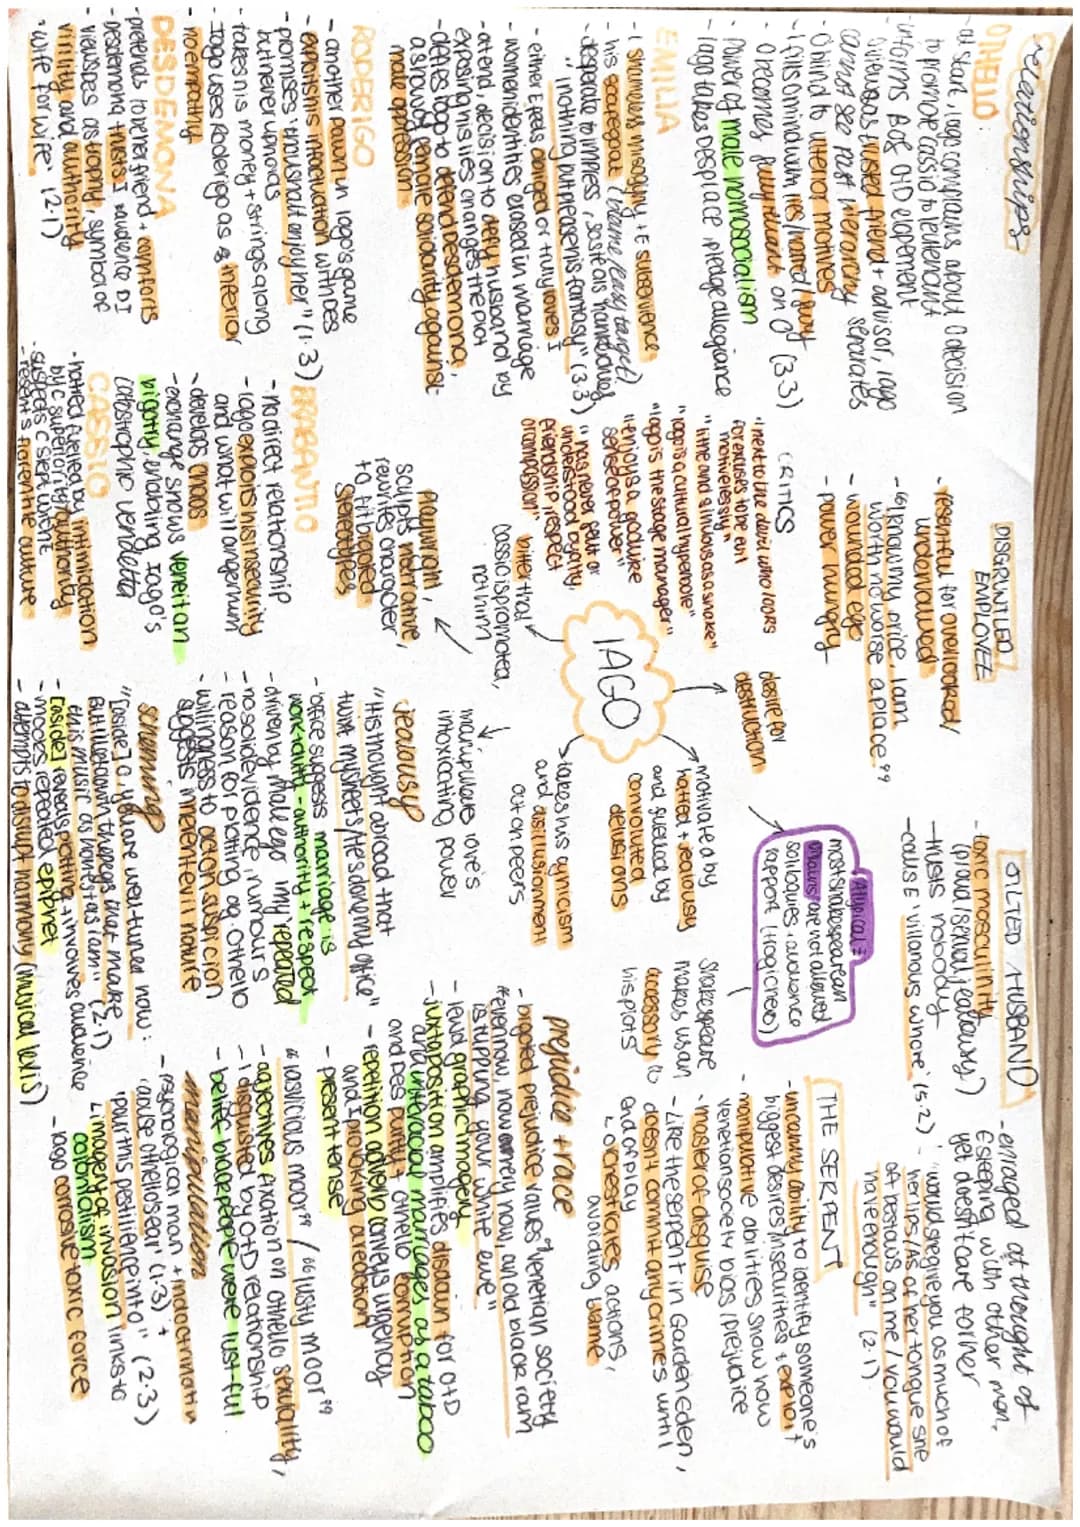 relationships
OTHELLO:
- at start, Iago complains about O decision
to promote Cassio to lieutenant
- informs B of O+D elopement
- O views as trusted friend + advisor, Iago
cannot see past hierarchy separates
- O blind to ulterior motives
- I fills O mind with lies/hatred/fury
- O becomes fully reliant on O (3.3)
- power of male homosocialism
- Iago takes DES place, pledge allegiance
EMILIA
- I shameless misogyny + E subservience
- his scapegoat (blame/easy target)
- desperate to impress, so sits as handkerchief
"I nothing but please his fantasy" (3.3)
- either E feels obliged or fully loves I
- women identities erased in marriage
- at end, decision to defy husband by
exposing his lies changes the plot
- defies Iago to defend Desdemona,
a show of female solidarity against
male oppression
RODERIGO
- another pawn in Iago's game
- exploits his infatuation with DES
- promises "thou shalt enjoy her" (1.3)
but never upholds
- takes his money + strings along
- Iago uses Roderigo as inferior
- no empathy
DESDEMONA
- pretends to be her friend + comforts
- Desdemona trusts I, audience DI
- views DES as trophy, symbol of
virility and authority
- 'wife for wife' (2.1)
DISGRUNTLED
EMPLOYEE
- resentful for overlooked/
undervalued
- "I know my price, I am
worth no worse a place"
- wounded ego
- power hungry
CRITICS
"next to the devil who looks
for excuses to be evil
motivelessly"
"lithe and sinuous as a snake"
"Iago is a cultural hyperbole"
"Iago is the stage manager"
"enjoys a godlike
sense of power"
"has never felt or
understood loyalty,
friendship, respect
or compassion"
IAGO
desire for
destruction
motivated by
hatred + jealousy
and fuelled by
convoluted
delusions
takes his cynicism
and disillusionment
out on peers
manipulates love's
intoxicating power
bitter that
Cassio is promoted,
not him
playwright,
sculpts narrative,
rewrites character,
to fit bigoted
stereotypes
BRABANTIO
- no direct relationship
- Iago exploits his insecurity
and what will anger him
- develops chaos
- exchange shows Veneitan
bigotry, enabling Iago's
catastrophic vendetta
CASSIO
- hatred fuelled by intimidation
by C superiority/authority
- suspects C slept with E
- resents Florentine culture
Atypical =
most Shakespearean
villains are not allowed
soliloquies + audience
rapport (tragic hero)
Shakespeare
makes us an
accessory to
his plots
jealousy
"it is thought abroad that
twixt my sheets/He's done my office"
- 'office' suggests marriage is
work/duty - authority + respect
- driven by male ego 'my' repeated
- no solid evidence, rumours
- reason for plotting ag. Othello
- willingness to act on suspicion
suggests inherent evil nature
scheming
"[aside] O, you are well-tuned now:
But I'll set down the pegs that make
this music, as honest as I am" (2.1)
- [aside] reveals plotting + involves audience
- mocks repeated epithet
- attempts to disrupt harmony (musical lexis)
JILTED HUSBAND
- toxic masculinity
(proud/sexual jealousy)
- trusts nobody
- calls E 'villanous whore' (5.2)
- enraged at thought of
E sleeping with other men,
yet doesn't care for her
- "would she give you as much of
her lips/As of her tongue she
oft bestows on me/You would
have enough" (2.1)
THE SERPENT
- uncanny ability to identify someone's
biggest desires/insecurities + exploit
- manipulative abilities show how
venetian society bias/prejudice
- master of disguise
- Like the serpent in Garden Eden,
doesn't commit any crimes until
end of play
↳ orchestrates actions,
avoiding blame
prejudice + race
- bigoted prejudice values of Venetian society
"even now, now, very now, an old black ram
is tupping your white ewe"
- lewd graphic imagery
- juxtaposition amplifies disdain for O+D
and interracial marriages as a taboo
and DES purity + Othello corruption
- repetition adverb conveys urgency
and I provoking overaction
- present tense
"lascivious moor" / "lusty moor"
- adjectives fixation on Othello sexuality,
I disgusted by O+D relationship
- belief black people were lust-ful
manipulation
- psychological man + indoctrinatin
- 'abuse Othello's ear' (1.3) +
'pour this pestilence into' (2.3)
↳ imagery of invasion links to
colonialism
- Iago corrosive toxic force